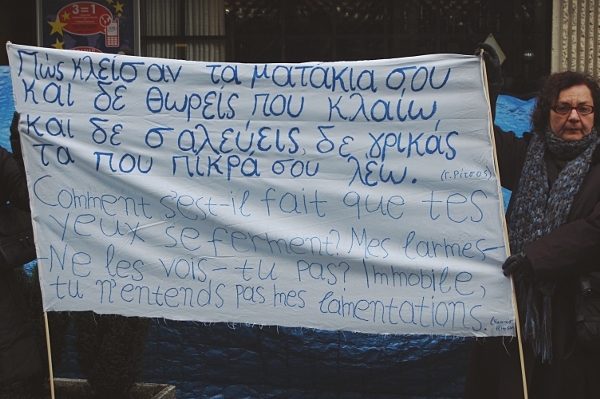 3=1
Πώς κλείσαν τα ματάκια σου
και δε θωρείς που κλαίω
και δε σαλεύεις, δε γρικάς
τα που πικρά σου λέω.
(Γ. Ρίτσος)
Comment s'est-il fait que tes
yeux se ferment? Mes larmes-
-Ne les vois-tu pas? Immobile,
tu n'entends pas mes lamentations.